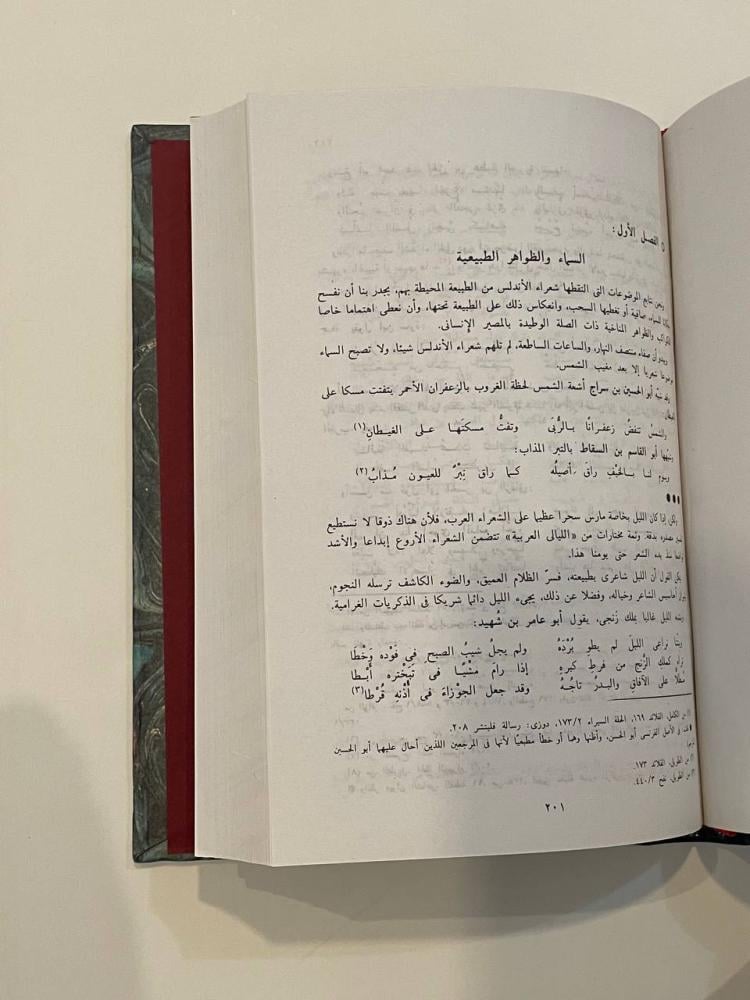 الفصل الأول:
السماء والظواهر الطبيعية
نتابع الموضوعات التى التقطها شعراء الأندلس من الطبيعة المحيطة بهم، يجدر بنا أن نفسح
للسماء، صافية أو تغطيها السحب، وانعكاس ذلك على الطبيعة تحتها، وأن نعطى اهتماما خاصا
والظواهر المناخية ذات الصلة الوطيدة بالمصير الإنسانى.
ويبدو أن صفاء منتصف النهار، والساعات الساطعة، لم تلهم شعراء الأندلس شيئا، ولا تصبح السماء
شعريا إلا بعد مغيب الشمس.
أبو الحسين بن سراج أشعة الشمس لحظة الغروب بالزعفران الأحمر يتفتت مسكا على
والشمسُ تنفضُ زعفرانًا بالرُّبَى وتفتُّ مسكتَها على الغيطانِ(١)
أبو القاسم بن السقاط بالتبر المذاب:
لنا بالخَيْفِ راقَ أصيلُه كما راق تِبْرٌ للعيون مُذابُ(٢)
●●●
إذا كان الليل بخاصة مارس سحرا عظيما على الشعراء العرب، فلأن هناك ذوقا لا نستطيع
بدقة. وثمة مختارات من «الليالى العربية» تتضمن الشعراء الأروع إبداعا والأشد
الشعر حتى يومنا هذا.
القول أن الليل شاعرى بطبيعته، فسرّ الظلام العميق، والضوء الكاشف ترسله النجوم،
أحاسيس الشاعر وخياله، وفضلا عن ذلك، يجىء الليل دائما شريكا فى الذكريات الغرامية.
الليل غالبا بملك زنجى، يقول أبو عامر بن شُهيد:
وبتنا نراعى الليلَ لم يطوِ بُرْدَهُ ولم يجلُ شيبُ الصبح فى فَوْده وَخْطَا
كملك الزَّنج من فرطِ كبره إذا رامَ مَشْيًا فى تَبَخْتره أبْطا
على الآفاق والبدرُ تاجُهُ وقد جعل الجوْزاءَ فى أُذْنِه قُرْطا(٣)
القلائد ١٦٩، الحلة السيراء ١٧٣/٢، دوزى: رسالة فليتشر ٢٠٨.
فى الأصل الفرنسى أبو الحسن، وأظنها وهما أو خطأ مطبعيًا لأنها فى المرجعين اللذين أحال عليهما أبو الحسين
من الطويل، القلائد ١٧٣.
من الطويل، نفح ٤٤٠/٣.
٢٠١